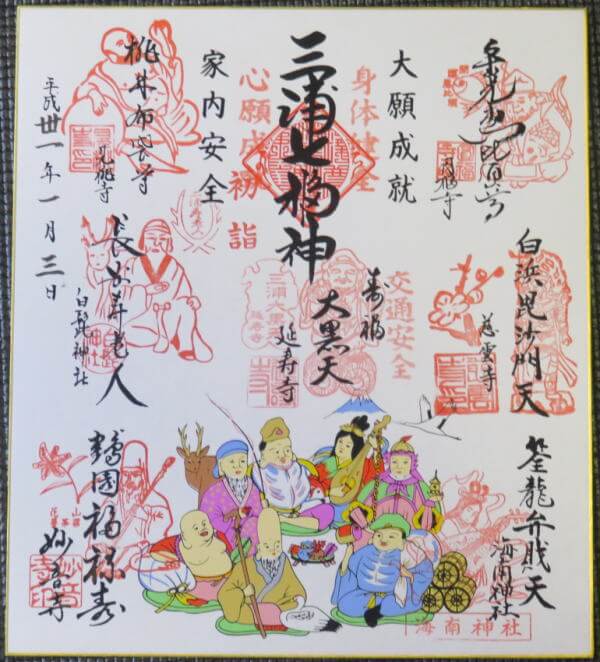 金光恵比寿尊
円福寺
白浜毘沙門天
慈雲寺
筌龍弁財天
海南神社
海南神社
大願成就
身体健全
交通安全
三浦七福神
寿福
大黒天
延寿寺
心願成就
初詣
家内安全
桃林布袋尊
見桃寺
長安寿老人
白髭神社
鶴園福禄寿
妙音寺
平成卅一年一月三日